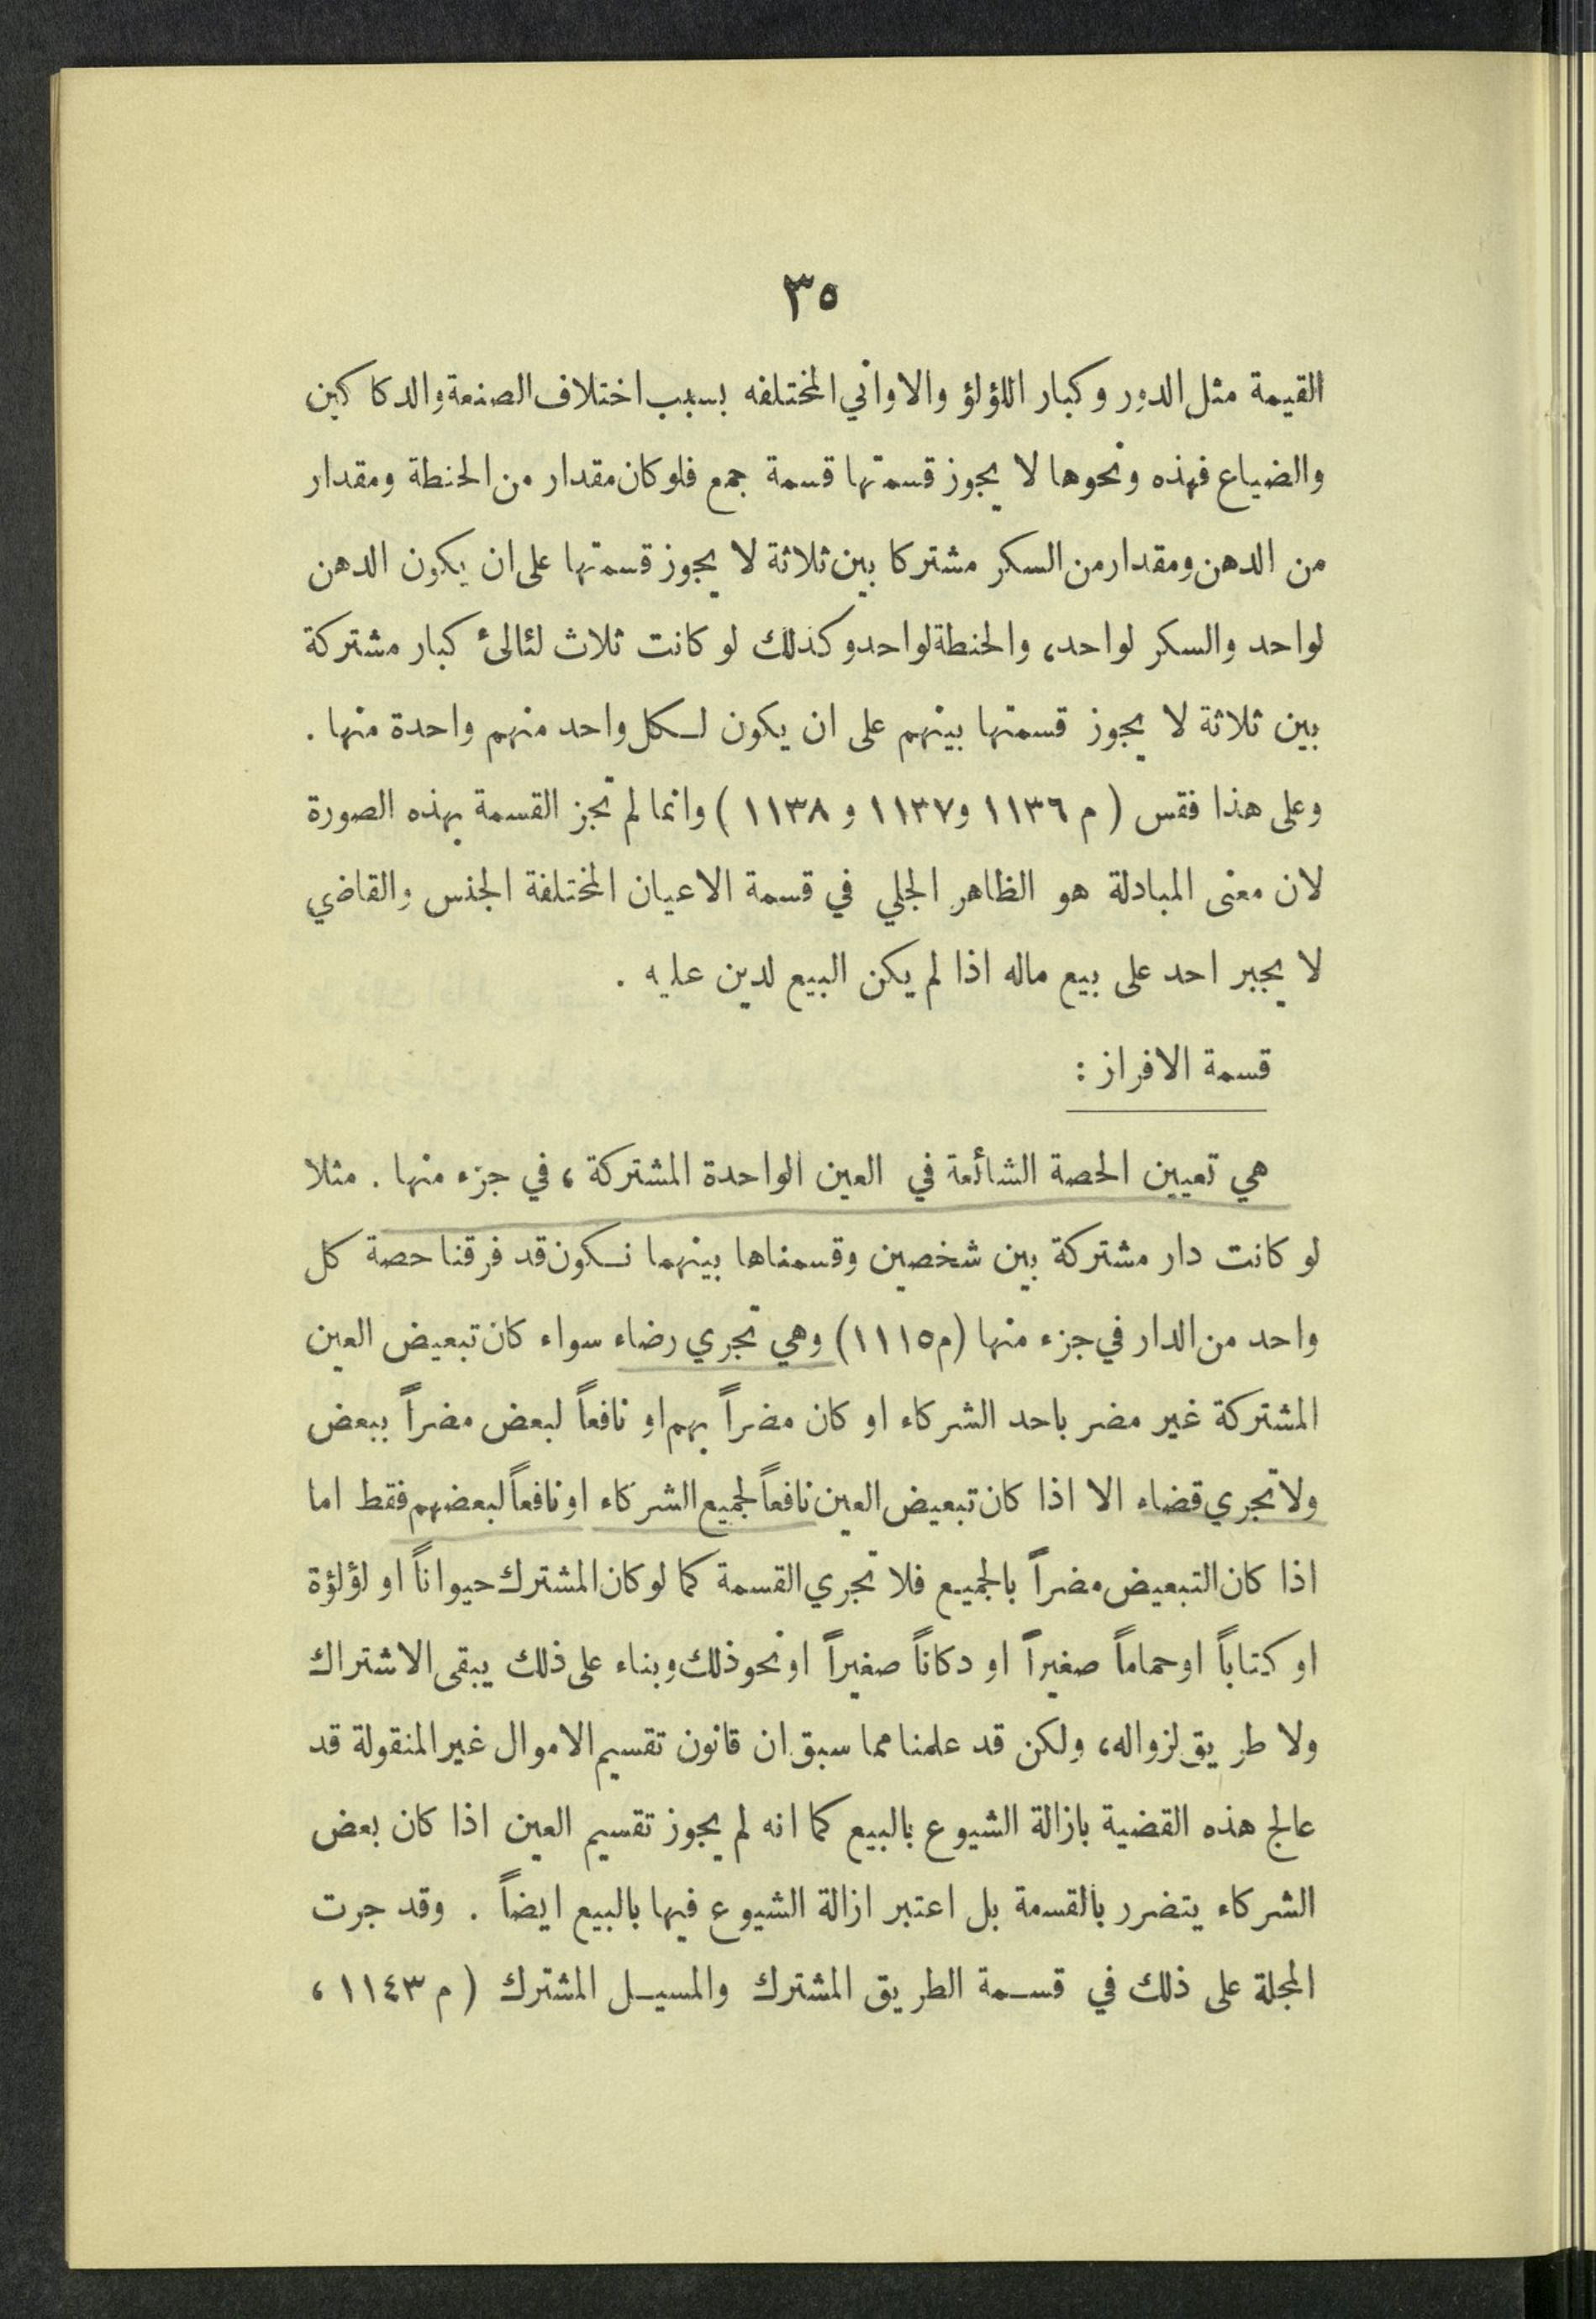 ٣٥
القيمة مثل الدور وكبار اللؤلؤ والاواني المختلفه بسبب اختلاف الصنعة والدكاكين
والضياع فهذه ونحوها لا يجوز قسمتها قسمة جمع فلو كان مقدار من الحنطة ومقدار
من الدهن ومقدار من السكر مشتركا بين ثلاثة لا يجوز قسمتها على ان يكون الدهن
لواحد والسكر لواحد، والحنطة لواحد وكذلك لو كانت ثلاث لئالئ كبار مشتركة
بين ثلاثة لا يجوز قسمتها بينهم على ان يكون لكل واحد منهم واحدة منها .
وعلى هذا فقس ( م ١١٣٦ و١١٣٧ و ١١٣٨ ) وانما لم تجز القسمة بهذه الصورة
لان معنى المبادلة هو الظاهر الجلي في قسمة الاعيان المختلفة الجنس والقاضي
لا يجبر احد على بيع ماله اذا لم يكن البيع لدين عليه .
قسمة الافراز :
هي تعيين الحصة الشائعة في العين الواحدة المشتركة ، في جزء منها . مثلا
لو كانت دار مشتركة بين شخصين وقسمناها بينهما نكون قد فرقنا حصة كل
واحد من الدار في جزء منها (م ١١١٥) وهي تجري رضاء سواء كان تبعيض العين
المشتركة غير مضر باحد الشركاء او كان مضراً بهم او نافعاً لبعض مضراً ببعض
ولا تجري قضاء الا اذا كان تبعيض العين نافعاً لجميع الشركاء او نافعاً لبعضهم فقط اما
اذا كان التبعيض مضراً بالجميع فلا تجري القسمة كما لو كان المشترك حيواناً او لؤلؤة
او كتاباً او حماماً صغيراً او دكاناً صغيراً او نحو ذلك وبناء على ذلك يبقى الاشتراك
ولا طريق لزواله، ولكن قد علمنا مما سبق ان قانون تقسيم الاموال غير المنقولة قد
عالج هذه القضية بازالة الشيوع بالبيع كما انه لم يجوز تقسيم العين اذا كان بعض
الشركاء يتضرر بالقسمة بل اعتبر ازالة الشيوع فيها بالبيع ايضاً . وقد جرت
المجلة على ذلك في قسمة الطريق المشترك والمسيل المشترك ( م ١١٤٣ ،